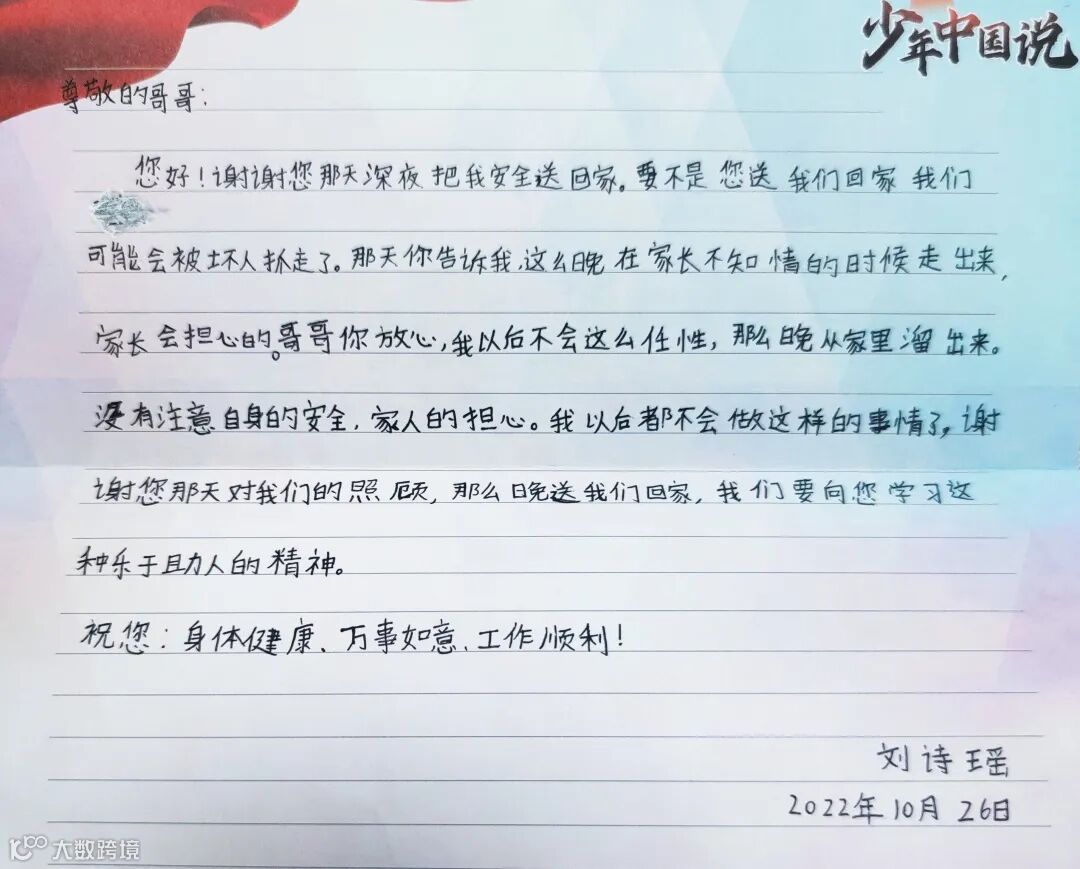 少年中国说
尊敬的哥哥：
您好！谢谢您那天深夜把我安全送回家。要不是您送我们回家我们
可能会被坏人抓走了。那天你告诉我，这么晚在家长不知情的时候走出来，
家长会担心的。哥哥你放心，我以后不会这么任性，那么晚从家里溜出来。
没有注意自身的安全，家人的担心。我以后都不会做这样的事情了，谢
谢您那天对我们的照顾，那么晚送我们回家，我们要向您学习这
种乐于助人的精神。
祝您：身体健康、万事如意、工作顺利！
刘诗瑶
2022年10月26日
大数跨境